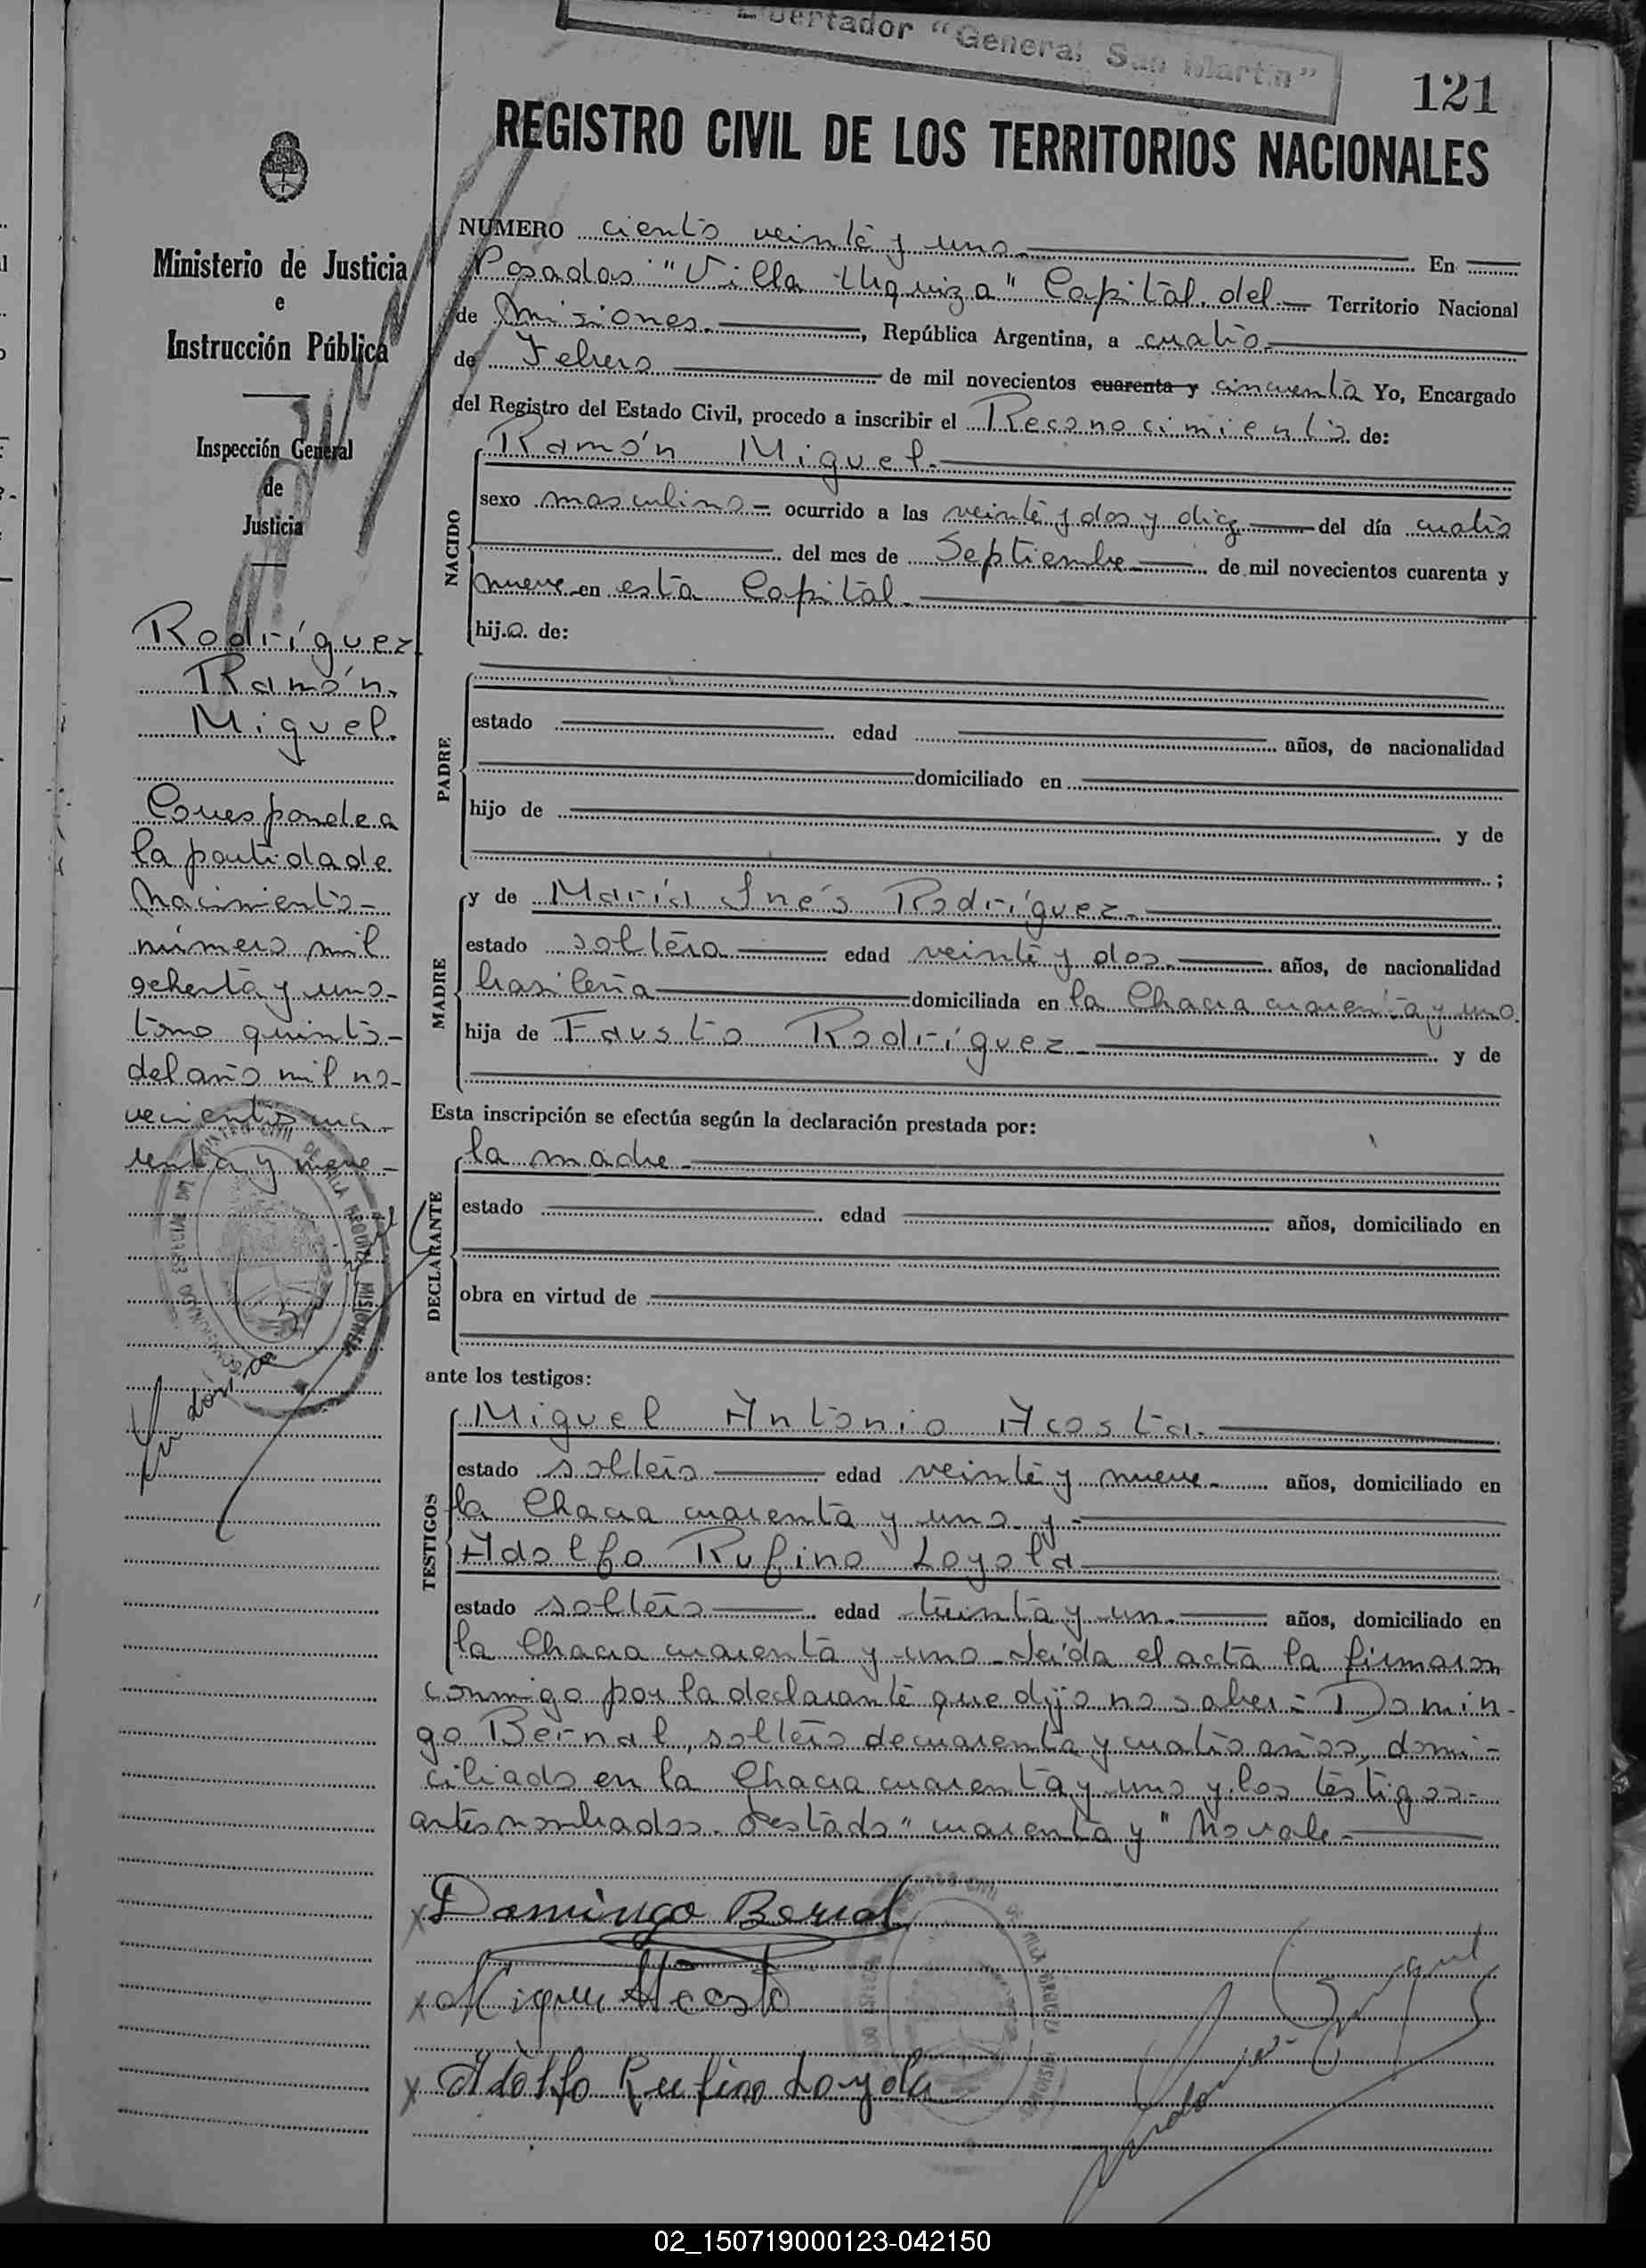 Libertador "General San Martin"
121
REGISTRO CIVIL DE LOS TERRITORIOS NACIONALES
Ministerio de Justicia
e
Instrucción Pública
Inspección General
de
Justicia
Rodríguez
Ramón
Miguel.
Corresponde a
la partida de
Nacimiento-
número mil
ochenta y uno-
tomo quinto-
del año mil no-
vecientos cua-
renta y nueve-
NUMERO ciento veinte y uno. En
Posadas "Villa Urquiza" Capital del Territorio Nacional
de Misiones. , República Argentina, a cuatro
de Febrero de mil novecientos cuarenta y cincuenta Yo, Encargado
del Registro del Estado Civil, procedo a inscribir el Reconocimiento de:
Ramón Miguel.
NACIDO
sexo masculino ocurrido a las veinte y dos y diez del día cuatro
del mes de Septiembre de mil novecientos cuarenta y
nueve en esta Capital.
hij.o. de:
PADRE
estado edad años, de nacionalidad
domiciliado en
hijo de y de
;
MADRE
y de María Inés Rodríguez.
estado soltera edad veinte y dos. años, de nacionalidad
brasileña domiciliada en la Chacra cuarenta y uno.
hija de Fausto Rodríguez y de
Esta inscripción se efectúa según la declaración prestada por:
la madre
DECLARANTE
estado edad años, domiciliado en
obra en virtud de
ante los testigos:
TESTIGOS
Miguel Antonio Acosta.
estado soltero edad veinte y nueve años, domiciliado en
la Chacra cuarenta y uno y
Adolfo Rufino Loyola
estado soltero edad treinta y un. años, domiciliado en
la Chacra cuarenta y uno. Leída el acta la firmaron
conmigo por la declarante que dijo no saber = Domin-
go Bernal, soltero de cuarenta y cuatro años, domi-
ciliado en la Chacra cuarenta y uno y los testigos-
antes nombrados. Testado "cuarenta y" No vale.
x Domingo Bernal
x Miguel Acosta
x Adolfo Rufino Loyola
02_150719000123-042150